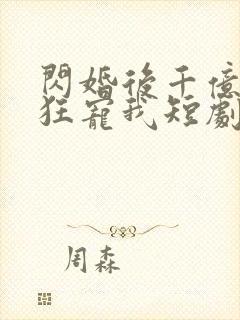 閃婚後千億
狂寵我短劇
周森